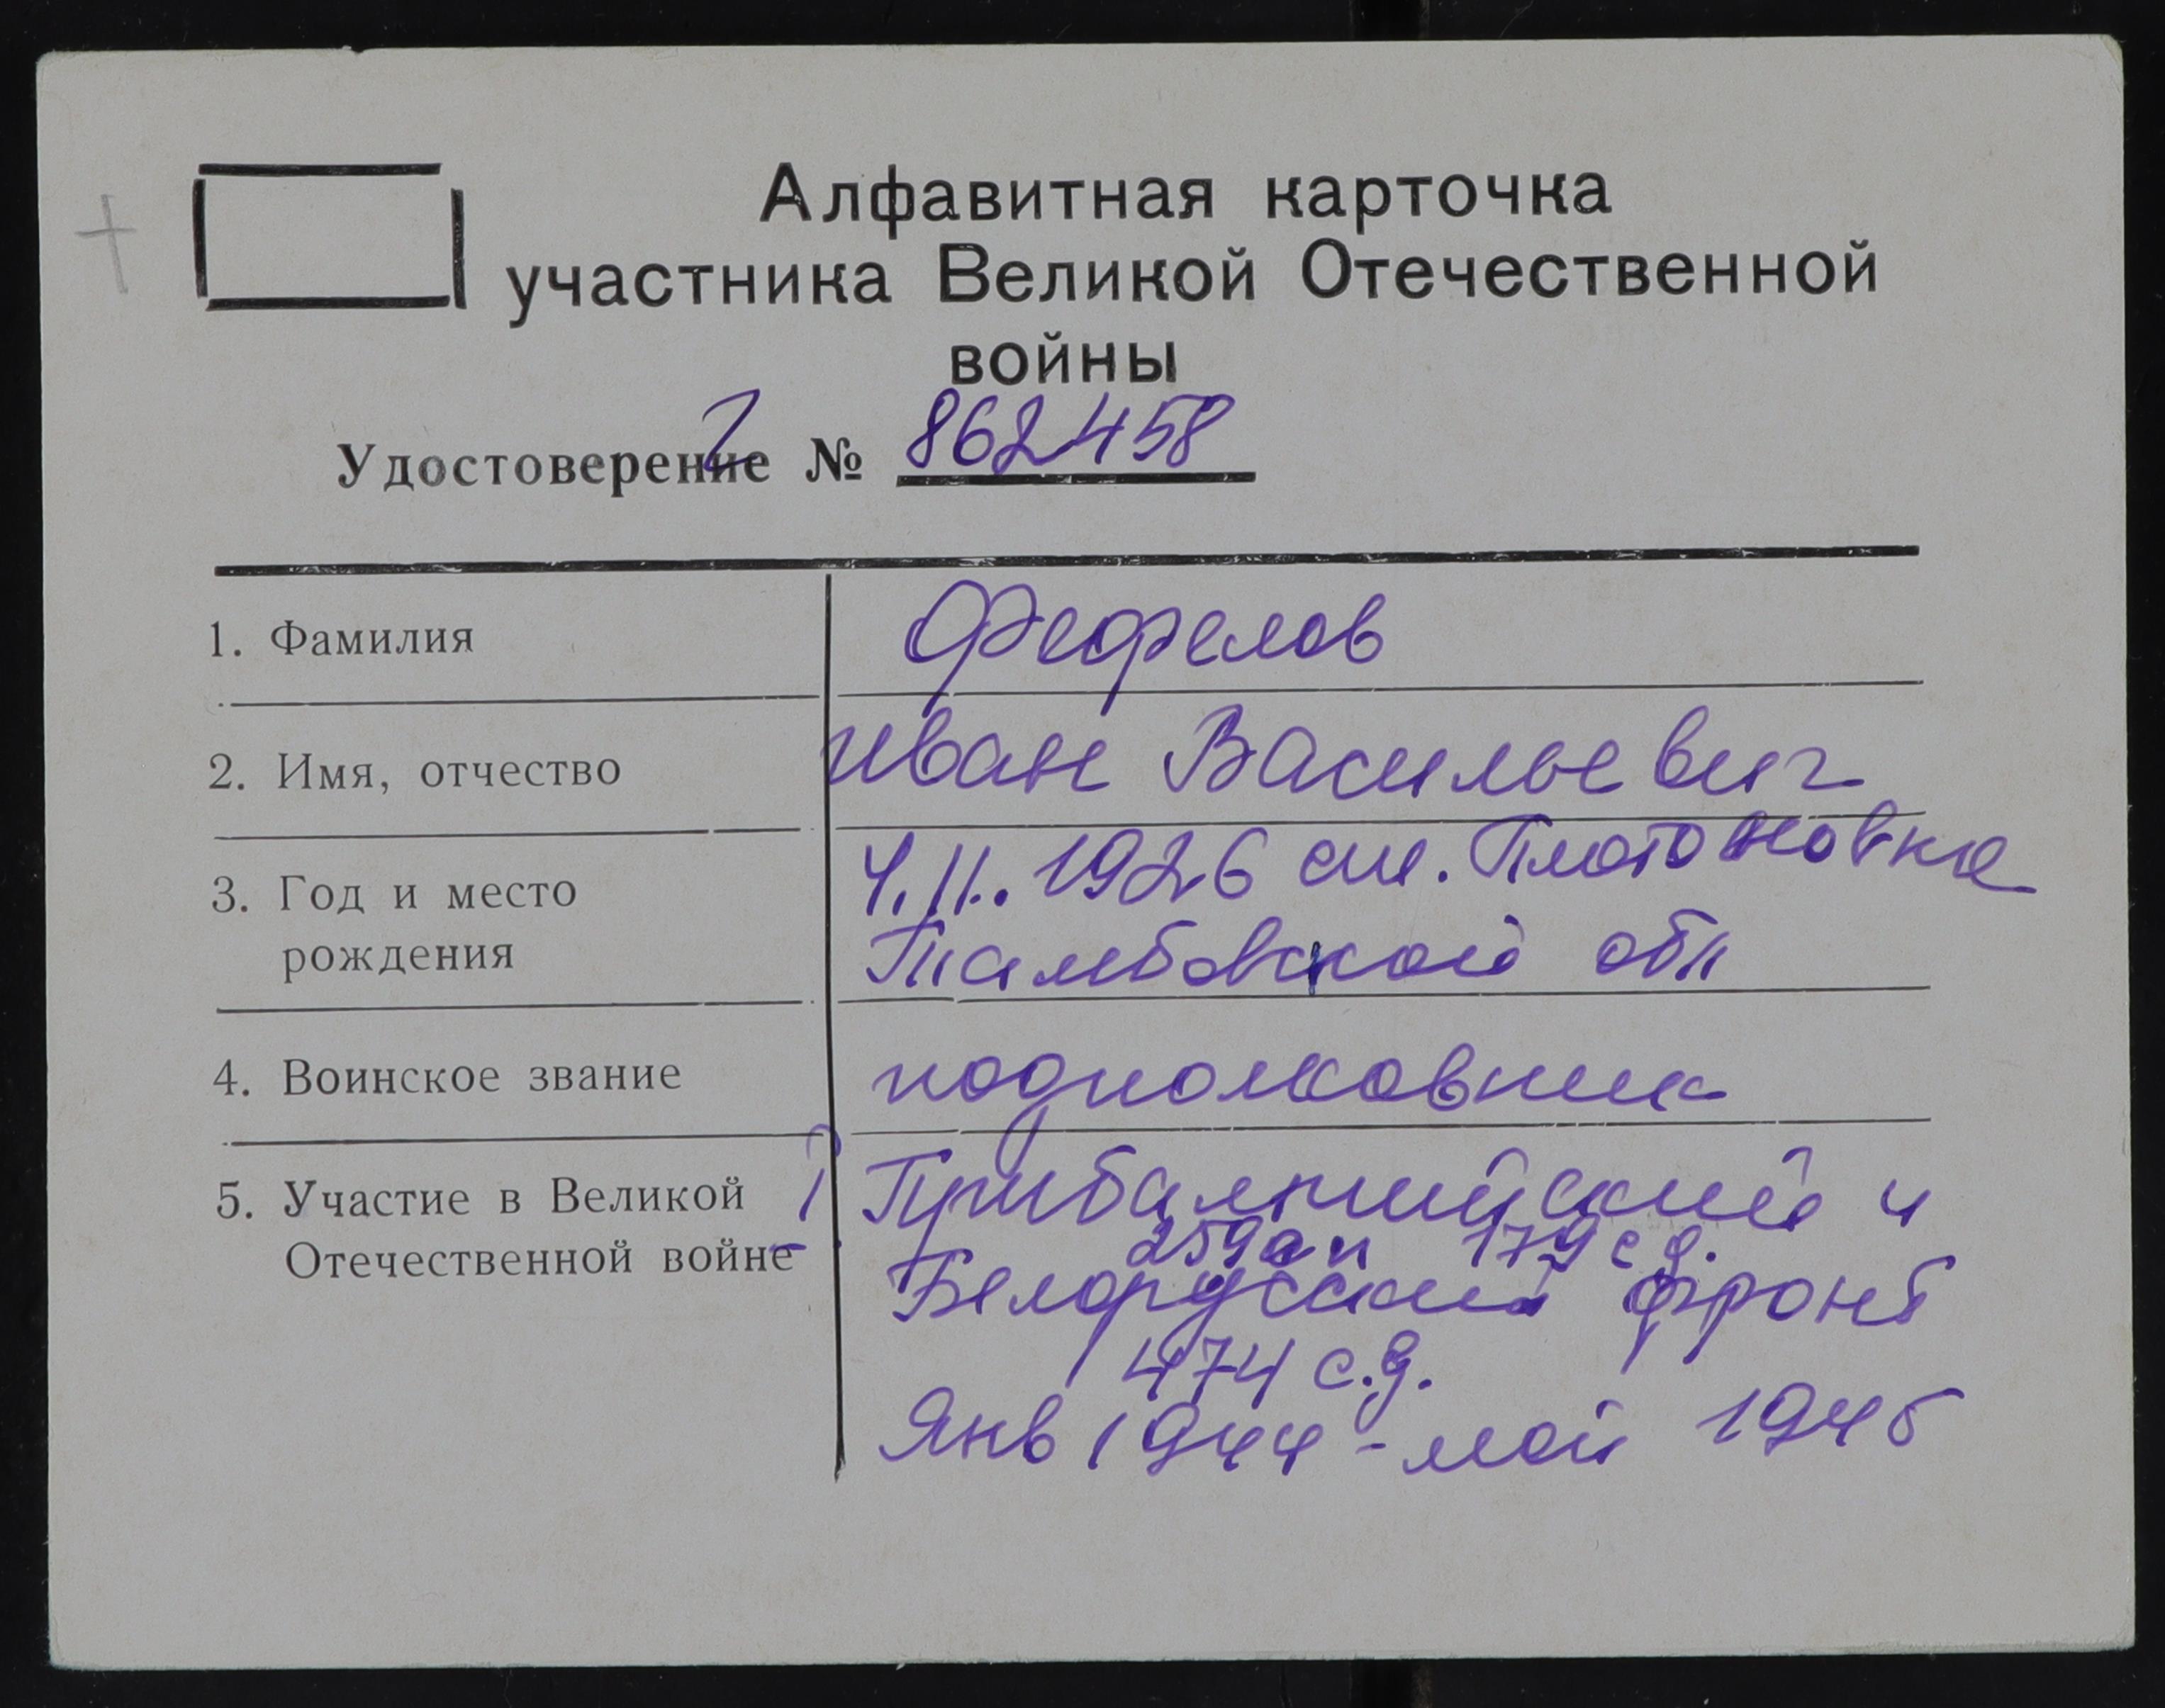 Алфавитная карточка
участника Великой Отечественной
войны
Удостоверение № 862458
1. Фамилия Фефелов
2. Имя, отчество Иван Васильевич
3. Год и место рождения 4.11.1926 ст. Платоновка
Тамбовской обл
4. Воинское звание подполковник
5. Участие в Великой Отечественной войне Прибалтийский и
259 сп 179 с.д.
Белорусский фронт
474 с.д.
Янв 1944 - май 1945